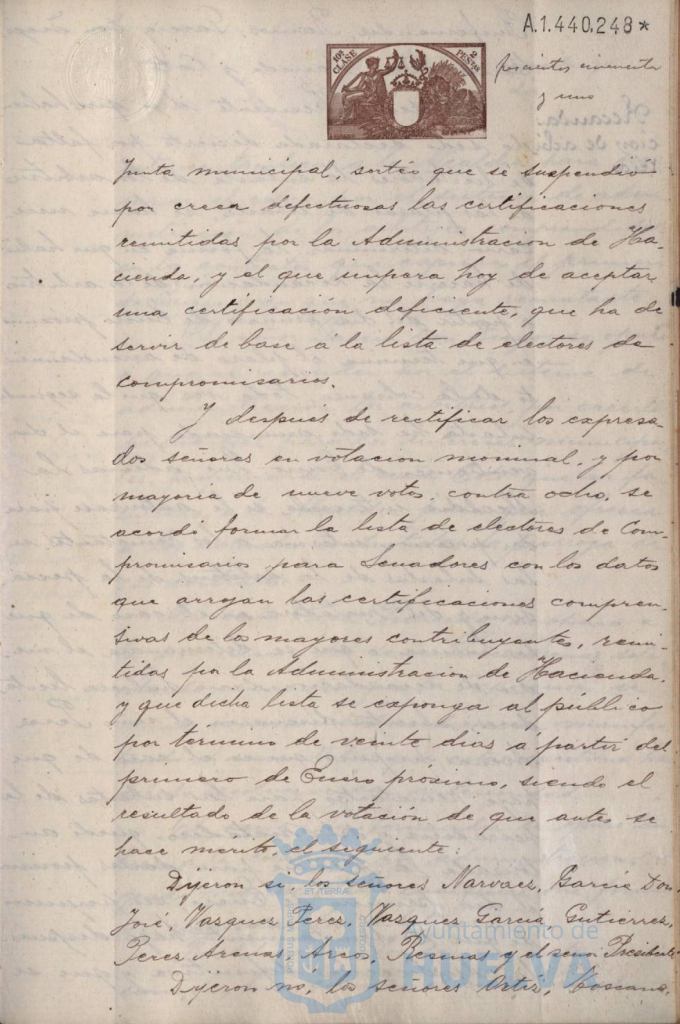 A.1.440.248*
10ª CLASE
2 PESETAS
y uno
Junta municipal, sorteo que se suspendió
por creer defectuosas las certificaciones
remitidas por la Administracion de Ha-
cienda, y el que impera hoy de aceptar
una certificación deficiente, que ha de
servir de base á la lista de electores de
compromisarios.
Y después de rectificar los expresa-
dos señores en votacion nominal, y por
mayoria de nueve votos, contra ocho, se
acordó formar la lista de electores de Com-
promisarios para Senadores con los datos
que arrojan las certificaciones compren-
sivas de los mayores contribuyentes, remi-
tidas por la Administracion de Hacienda,
y que dicha lista se exponga al público
por término de veinte dias á partir del
primero de Enero próximo, siendo el
resultado de la votación de que antes se
hace mérito, el siguiente:
Dijeron si, los señores Narvaez, García Don
José, Vazquez Perez, Vazquez García, Gutierrez,
Perez Arenas, Arco, Resinas y el señor Presidente
Dijeron no, los señores Ortiz, Toscano,
Ayuntamiento de
HUELVA